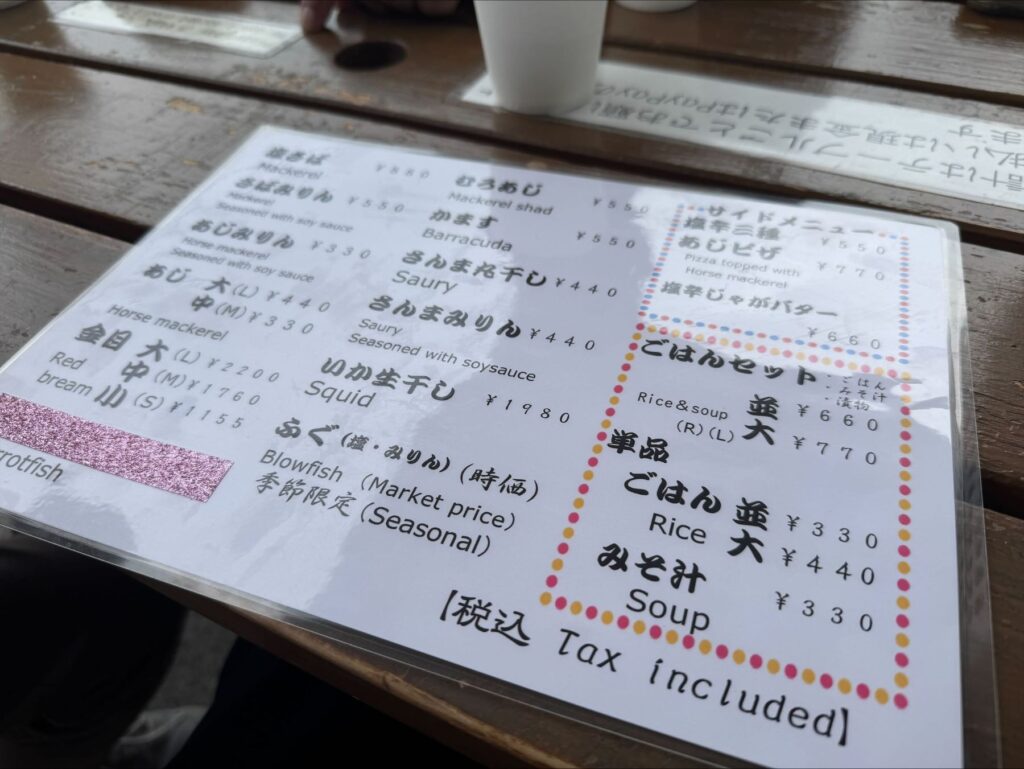 塩さば ¥880
Mackerel
さばみりん ¥550
Mackerel
Seasoned with soy sauce
あじみりん ¥330
Horse mackerel
Seasoned with soy sauce
あじ 大(L) ¥440
中(M) ¥330
Horse mackerel
金目 大(L) ¥2200
Red 中(M) ¥1760
bream 小(S) ¥1155
rotfish
むろあじ ¥550
Mackerel shad
かます ¥550
Barracuda
さんま丸干し ¥440
Saury
さんまみりん ¥440
Saury
Seasoned with soysauce
いか生干し ¥1980
Squid
ふぐ(塩・みりん)(時価)
Blowfish (Market price)
季節限定(Seasonal)
サイドメニュー
塩辛三種 ¥550
あじピザ ¥770
Pizza topped with
Horse mackerel
塩辛じゃがバター
¥660
ごはんセット ・ごはん
・みそ汁
・漬物
Rice&soup 並 ¥660
(R)(L) 大 ¥770
単品
ごはん 並 ¥330
Rice 大 ¥440
みそ汁 ¥330
Soup
【税込 Tax included】
計はテーブルごとでお願い
払いは現金またはPayPay
ます